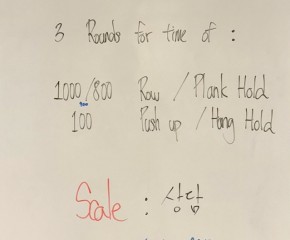 3 Rounds for time of :
1000/800 Row / Plank Hold
100 Push up / Hang Hold
Scale : 상담